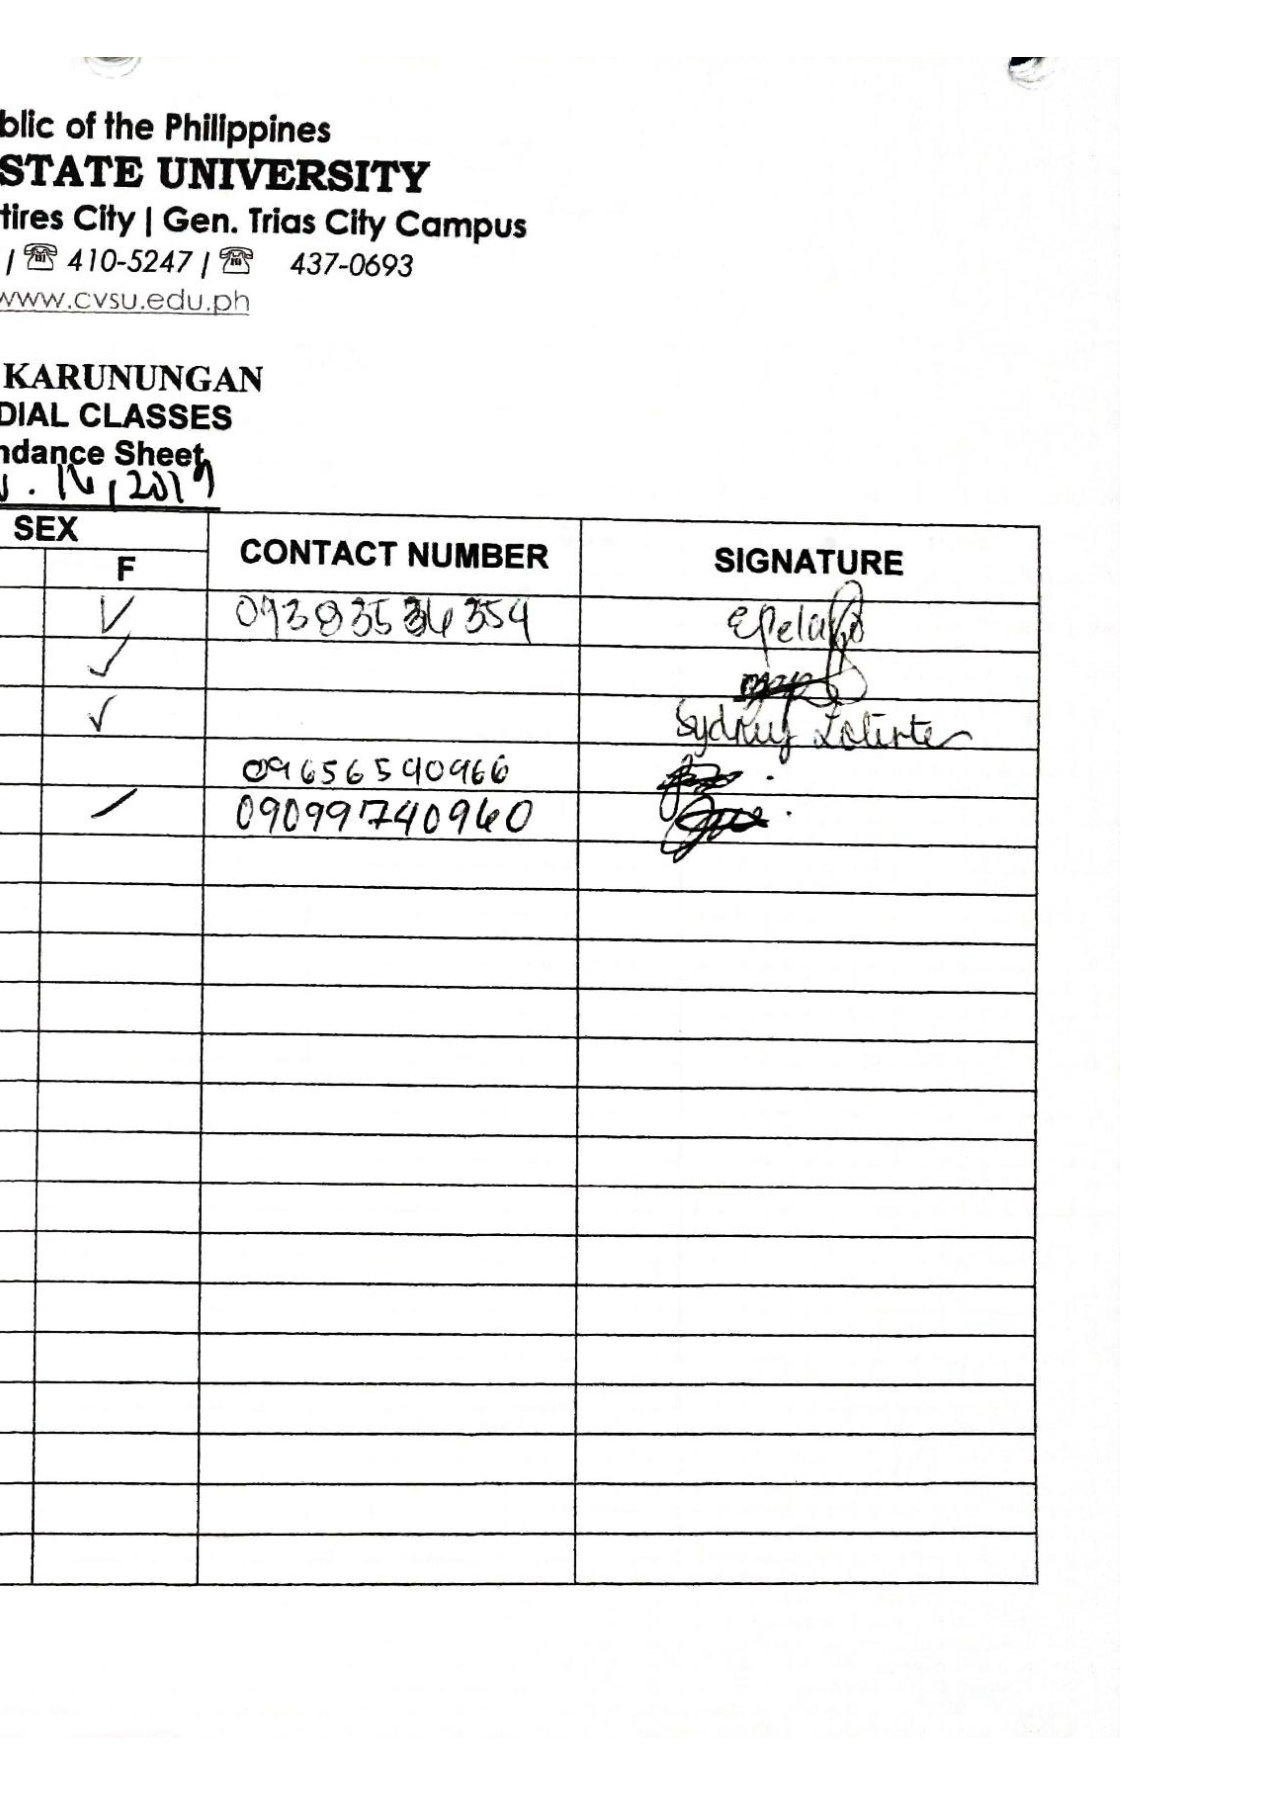 blic of the Philippines
STATE UNIVERSITY
tires City | Gen. Trias City Campus
| ☏ 410-5247 | ☏ 437-0693
www.cvsu.edu.ph
KARUNUNGAN
DIAL CLASSES
ndance Sheet
. 16, 2019
SEX CONTACT NUMBER SIGNATURE
F
✓ 09383536354
✓
✓ Sydney
09656590966
/ 09099740960